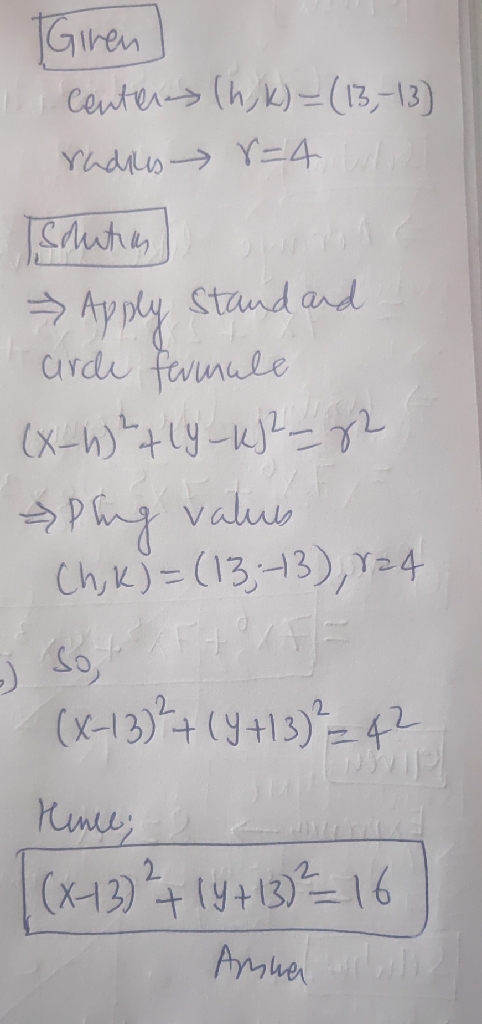 Given
center → (h,k) = (13,-13)
radius → r=4
Solution
⇒ Apply standard
circle formula
(x-h)²+(y-k)²=r²
⇒ Plug values
(h,k)=(13,-13), r=4
So,
(x-13)²+(y+13)²=4²
Hence;
(x-13)²+(y+13)²=16
Answer